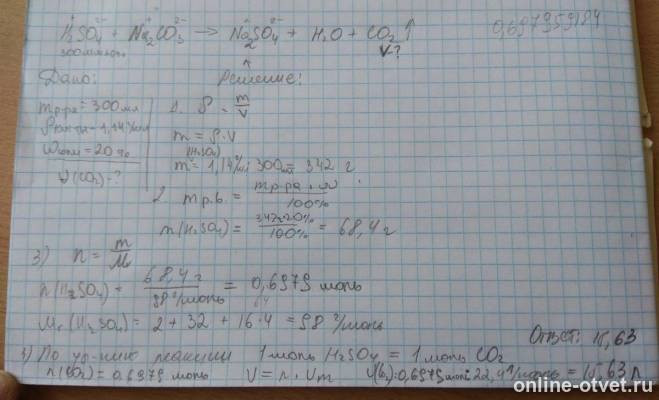 H₂SO₄ + Na₂CO₃ → Na₂SO₄ + H₂O + CO₂↑
0,697959184
300 мл
V-?
Дано:
Решение:
mр-ра = 300 мл
ρкислоты = 1,14 г/мл
= 20%
V(CO₂)-?
1. ρ = m/V
m = ρ·V
(H₂SO₄)
m = 1,14 г/мл·300мл = 342 г
2. mр.в. = mр-ра · ω / 100%
m(H₂SO₄) = 342·20% / 100% = 68,4 г
3) n = m/Mr
n(H₂SO₄) = 68,4 г / 98 г/моль = 0,6979 моль
Mr(H₂SO₄) = 2 + 32 + 16·4 = 98 г/моль
Ответ: 15,63
4) По ур-нию реакции 1 моль H₂SO₄ = 1 моль CO₂
n(CO₂) = 0,6979 моль V = n·Vm V(CO₂) = 0,6979 моль·22,4 л/моль = 15,63 л
online-otvet.ru